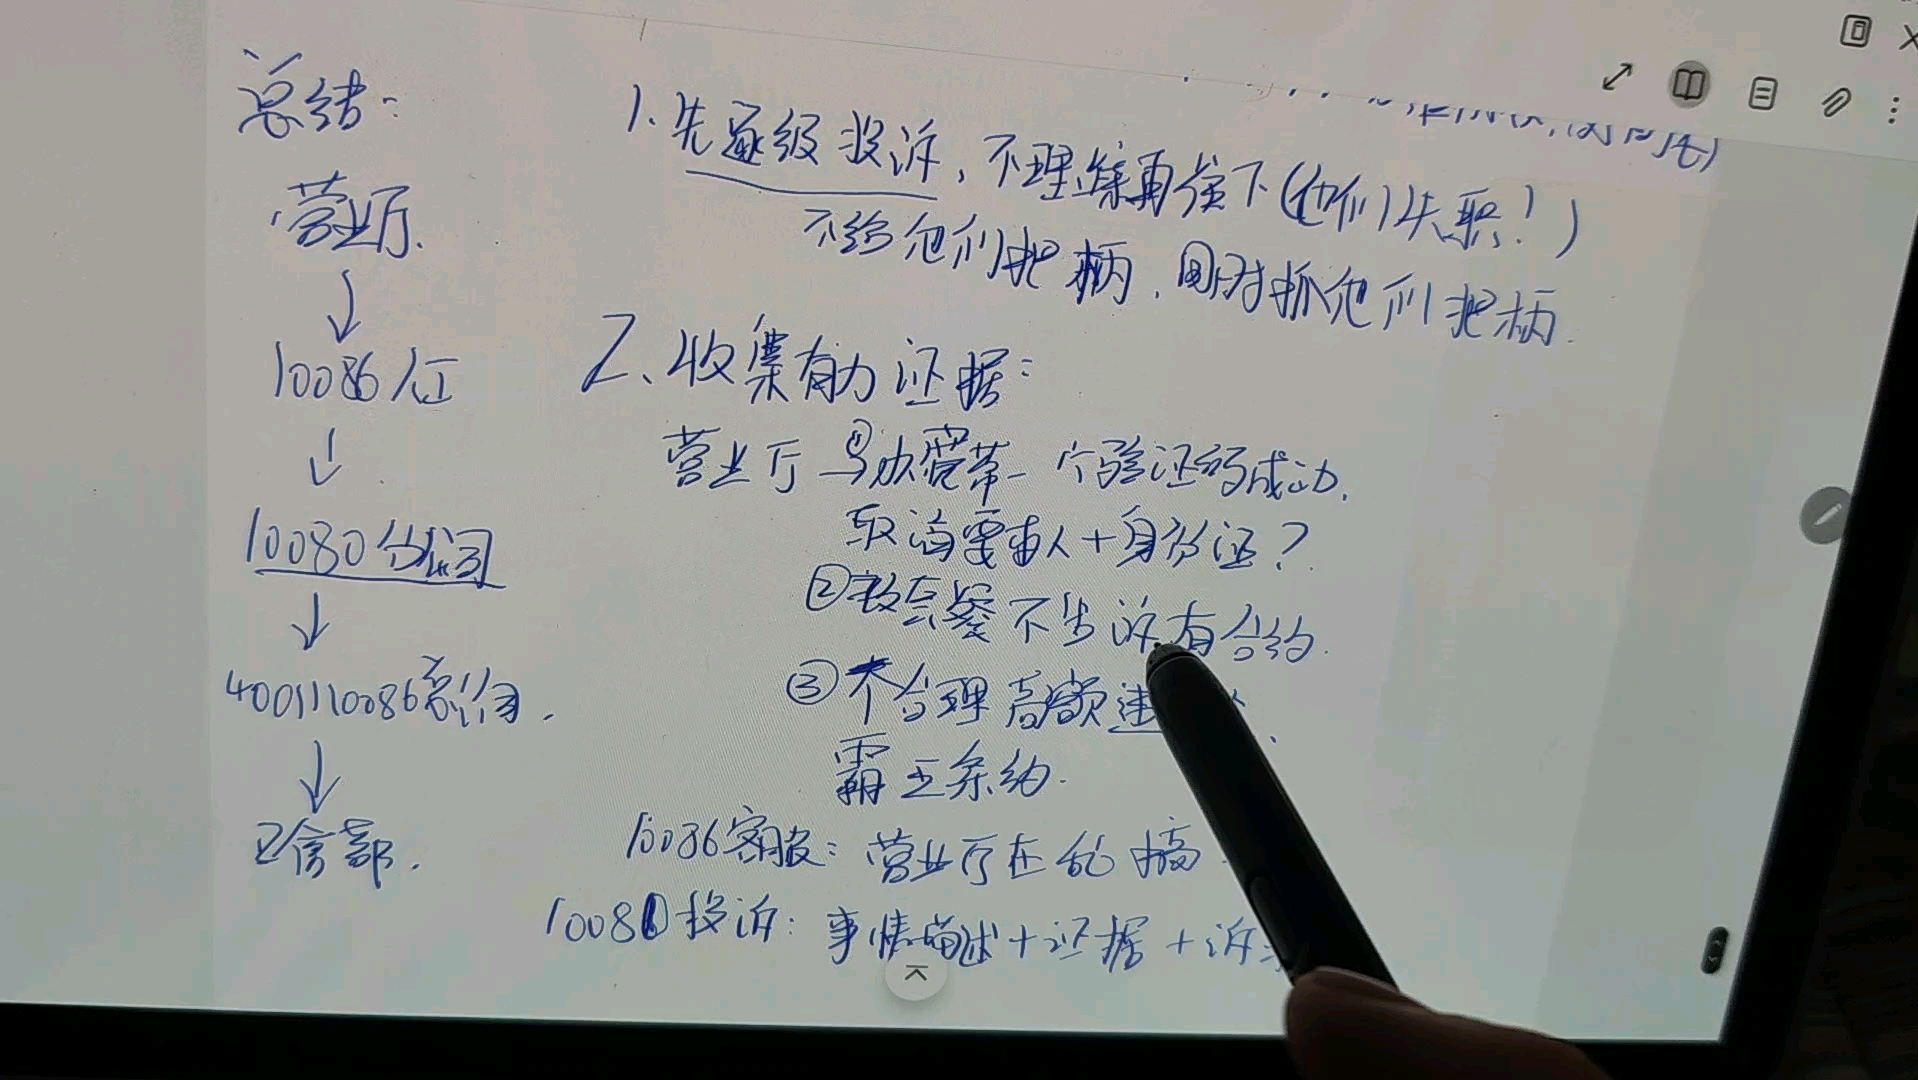 总结:
营业厅.
↓
10086人工
↓
10080分公司
↓
4001110086总公司.
↓
工信部.
1、先逐级投诉,不理睬再往下(他们失职!)
不给他们把柄,同时抓他们把柄.
2、收集有力证据:
营业厅 ①办宽带一个验证码成功.
取消要本人+身份证?
②改套餐不告诉有合约.
③不合理高额违
霸王条约.
10086客服:营业厅在乱搞.
10080投诉:事情描述+证据+诉